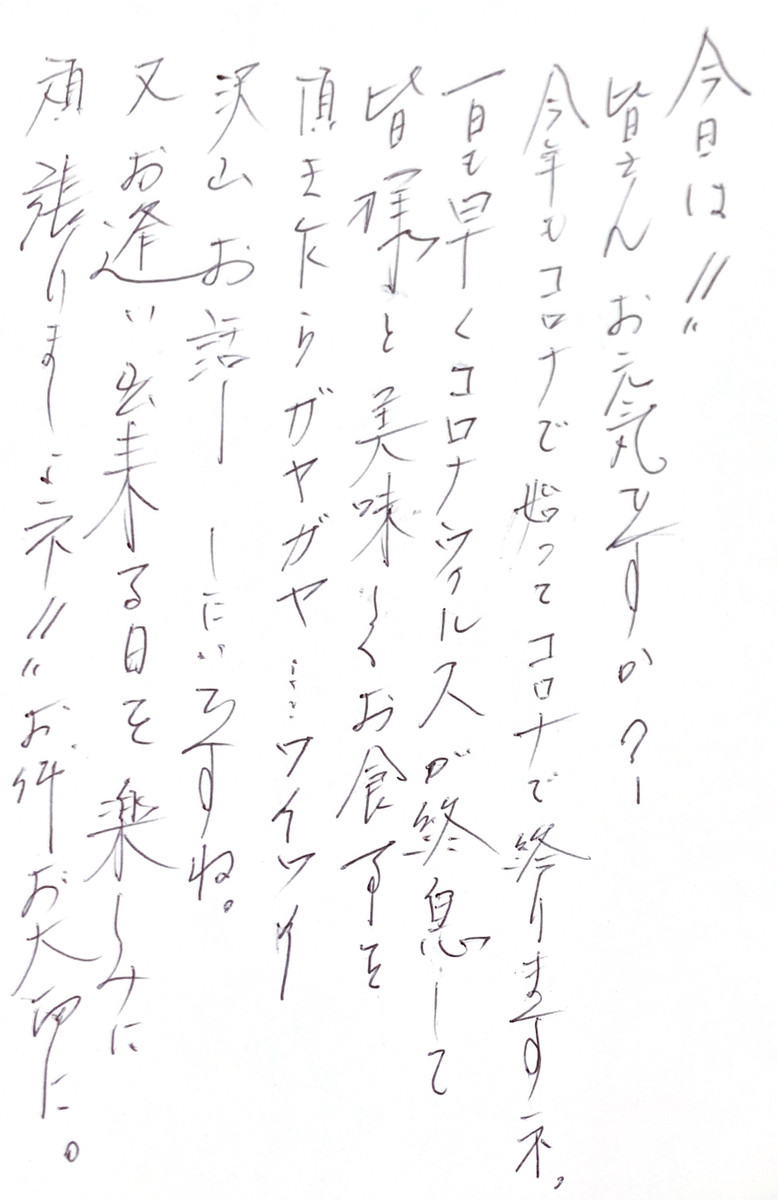 今日は!!
皆さんお元気ですか?
今年もコロナで始ってコロナで終りますネ。
一日も早くコロナウイルスが終息して
皆様と美味しくお食事を
頂きたらガヤガヤ……ワイワイ
沢山お話し したいですね。
又お逢い出来る日を楽しみに
頑張りましょうネ!!お体お大切に。